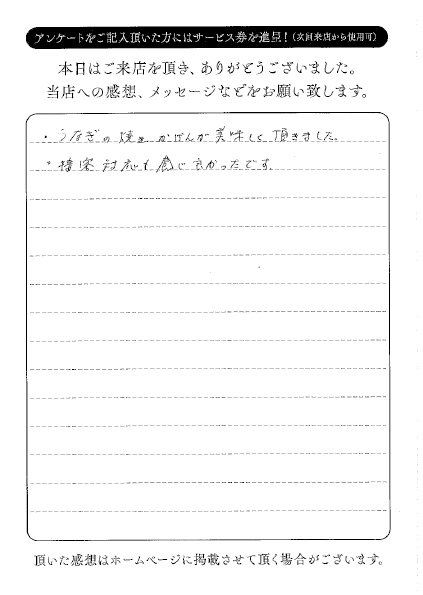 アンケートをご記入頂いた方にはサービス券を進呈！（次回来店から使用可）
本日はご来店を頂き、ありがとうございました。
当店への感想、メッセージなどをお願い致します。
・うなぎの焼きかげんが美味しく頂きました。
・接客対応も感じ良かったです。
頂いた感想はホームページに掲載させて頂く場合がございます。